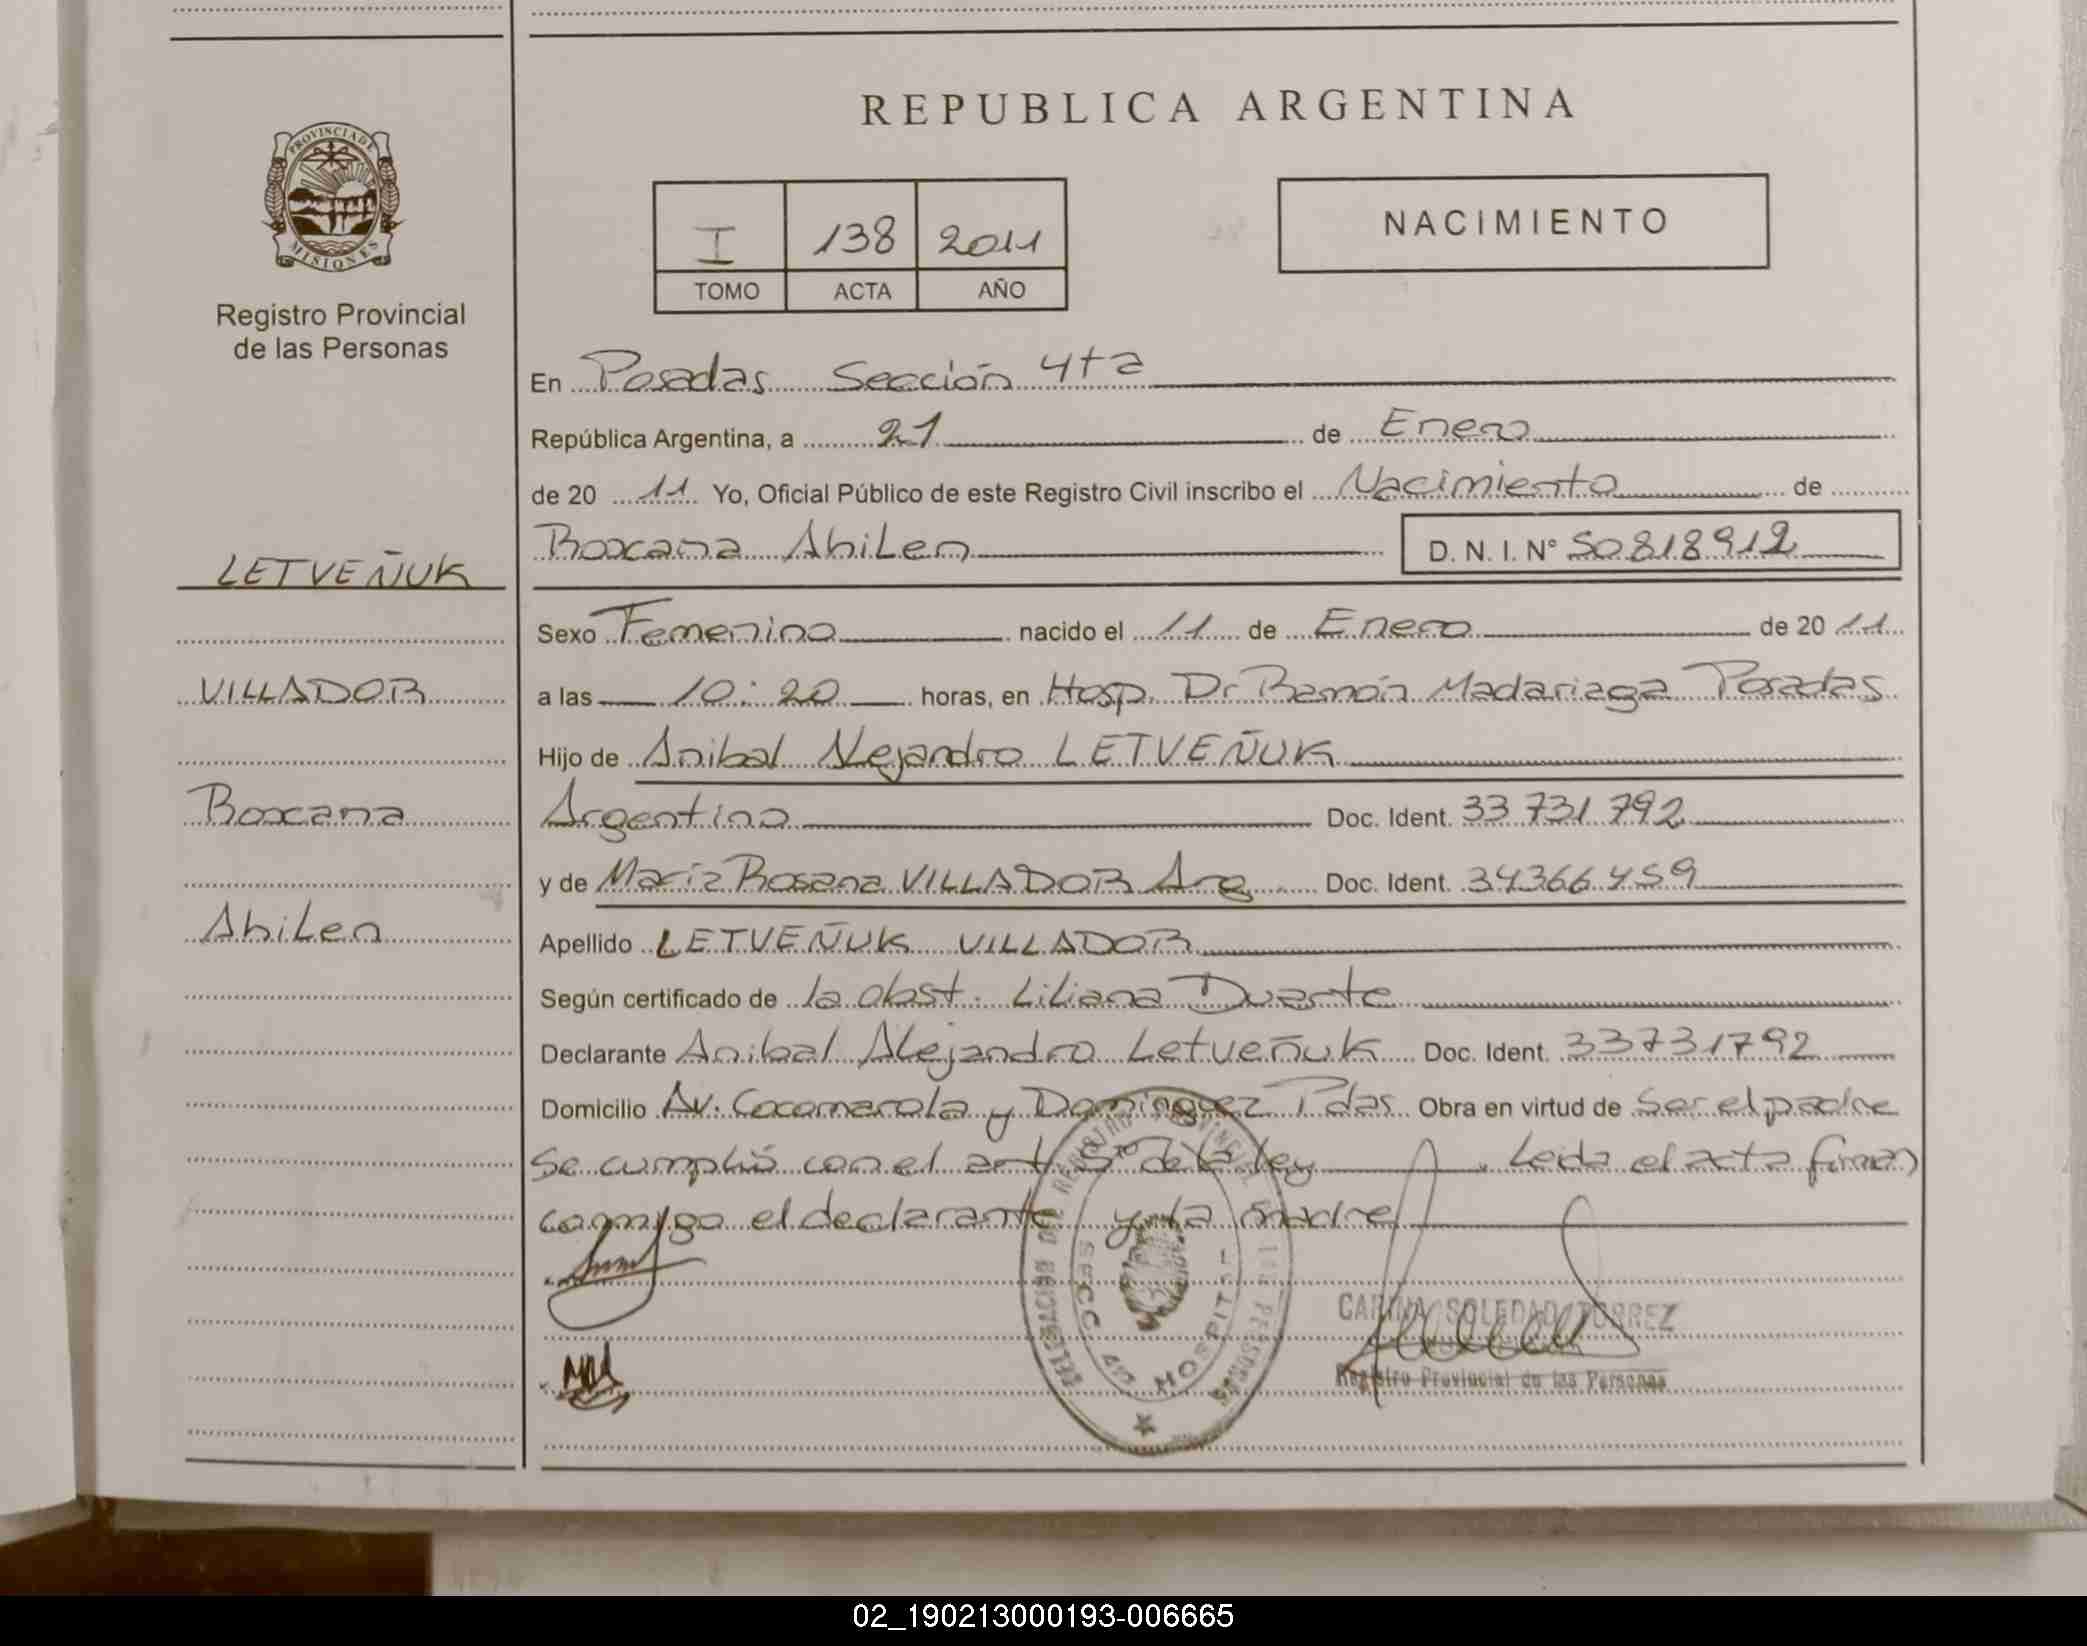 REPUBLICA ARGENTINA
PROVINCIA DE
MISIONES
Registro Provincial
de las Personas
I 138 2011
TOMO ACTA AÑO
NACIMIENTO
En Posadas Sección 4ta
República Argentina, a 21 de Enero
de 20 11 Yo, Oficial Público de este Registro Civil inscribo el Nacimiento de
Roxana Ahilen D. N. I. N° 50818912
LETVEÑUK
VILLADOR
Roxana
Ahilen
Sexo Femenino nacido el 11 de Enero de 20 11
a las 10:20 horas, en Hosp. Dr Ramón Madariaga Posadas
Hijo de Anibal Alejandro LETVEÑUK
Argentino Doc. Ident. 33 731 792
y de María Rosana VILLADOR Arg Doc. Ident. 34366459
Apellido LETVEÑUK VILLADOR
Según certificado de la obst. Liliana Duarte
Declarante Anibal Alejandro Letveñuk Doc. Ident. 33731792
Domicilio Av. Cocomarola y Dominguez Pdas Obra en virtud de Ser el padre
Se cumplió con el art 5to de la ley . Leida el acta firman
conmigo el declarante y la madre
SECC 4ta HOSPITAL
CARINA SOLEDAD TORREZ
Registro Provincial de las Personas
02_190213000193-006665